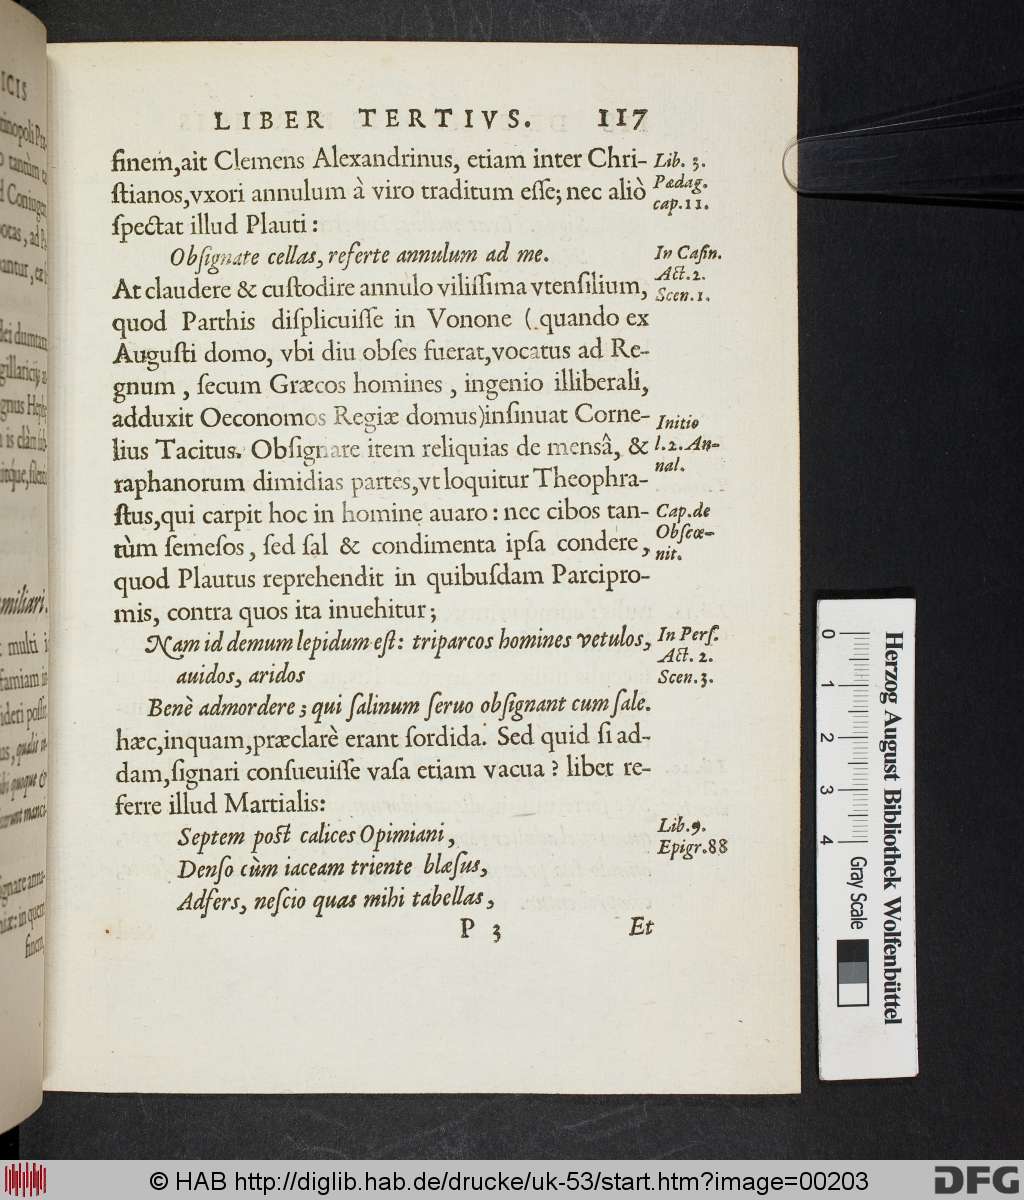 LIBER TERTIVS. 117
finem,ait Clemens Alexandrinus, etiam inter Chri-
ſtianos,vxori annulum à viro traditum eſſe; nec aliò
ſpectat illud Plauti:
Obſignate cellas, referte annulum ad me.
At claudere & cuſtodire annulo viliſſima vtenſilium,
quod Parthis diſplicuiſſe in Vonone (quando ex
Auguſti domo, vbi diu obſes fuerat,vocatus ad Re-
gnum, ſecum Græcos homines, ingenio illiberali,
adduxit Oeconomos Regiæ domus)inſinuat Corne-
lius Tacitus. Obſignare item reliquias de mensâ, &
raphanorum dimidias partes,vt loquitur Theophra-
ſtus,qui carpit hoc in homine auaro: nec cibos tan-
tùm ſemeſos, ſed ſal & condimenta ipſa condere,
quod Plautus reprehendit in quibuſdam Parcipro-
mis, contra quos ita inuehitur;
Nam id demum lepidum eſt: triparcos homines vetulos,
auidos, aridos
Benè admordere; qui ſalinum ſeruo obſignant cum ſale.
hæc,inquam,præclarè erant ſordida. Sed quid ſi ad-
dam,ſignari conſueuiſſe vaſa etiam vacua? libet re-
ferre illud Martialis:
Septem poſt calices Opimiani,
Denſo cùm iaceam triente blæſus,
Adfers, neſcio quas mihi tabellas,
P 3 Et
Lib. 3.
Pædag.
cap.11.
In Caſin.
Act.2.
Scen.1.
Initio
l.2.An-
nal.
Cap.de
Obſcœ-
nit.
In Perſ.
Act. 2.
Scen.3.
Lib.9.
Epigr.88
ICIS
tinopoli
tantùm
Coniugem
miliari.
multi
famiam
finem,
0 1 2 3 4
Gray Scale
Herzog August Bibliothek Wolfenbüttel
© HAB http://diglib.hab.de/drucke/uk-53/start.htm?image=00203
DFG